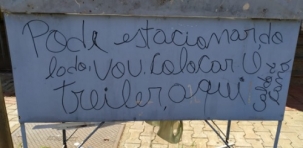 Pode estacionar do
lado, vou, colocar O,
treiler, aqui